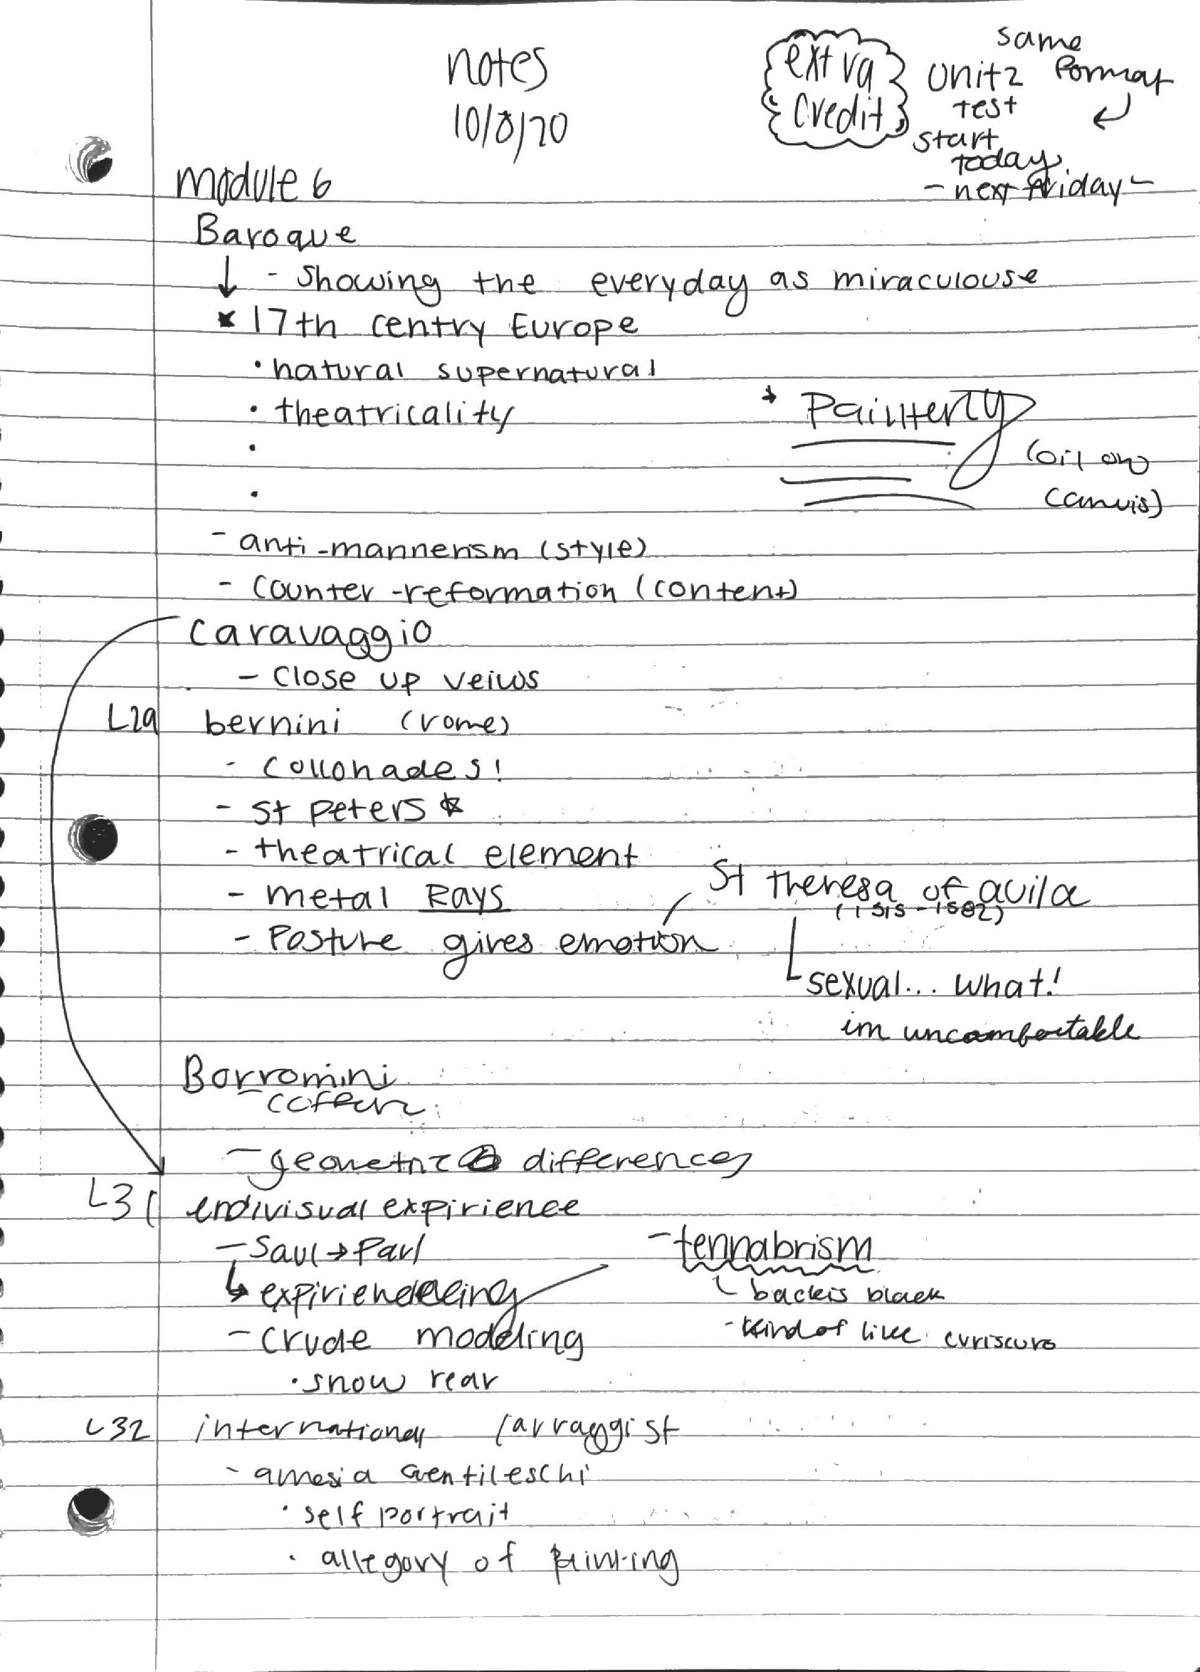 notes
10/8/20
extra
credit
same
Unit 2 format
test
start
today
- next friday -
module 6
Baroque
- Showing the everyday as miraculouse
17th centry Europe
• natural supernatural
• theatricality
•
•
* Painterly
(oil on
canvis)
- anti-mannerism (style)
- counter-reformation (content)
Caravaggio
- Close up veiws
L29 bernini (rome)
- Collonades!
- St peters
- theatrical element
- metal Rays
- Posture gives emotion
St Theresa of avila
(1515-1582)
sexual... what!
im uncomfortable
Borromini
- coffers
- geometric differences
L31 endivisual expirience
- Saul → Paul
- crude modeling
• show rear
- tennabrism
back is black
- kind of like curiscuro
L32 international Carraggist
- amesia Gentileschi
• self portrait
• allegory of painting